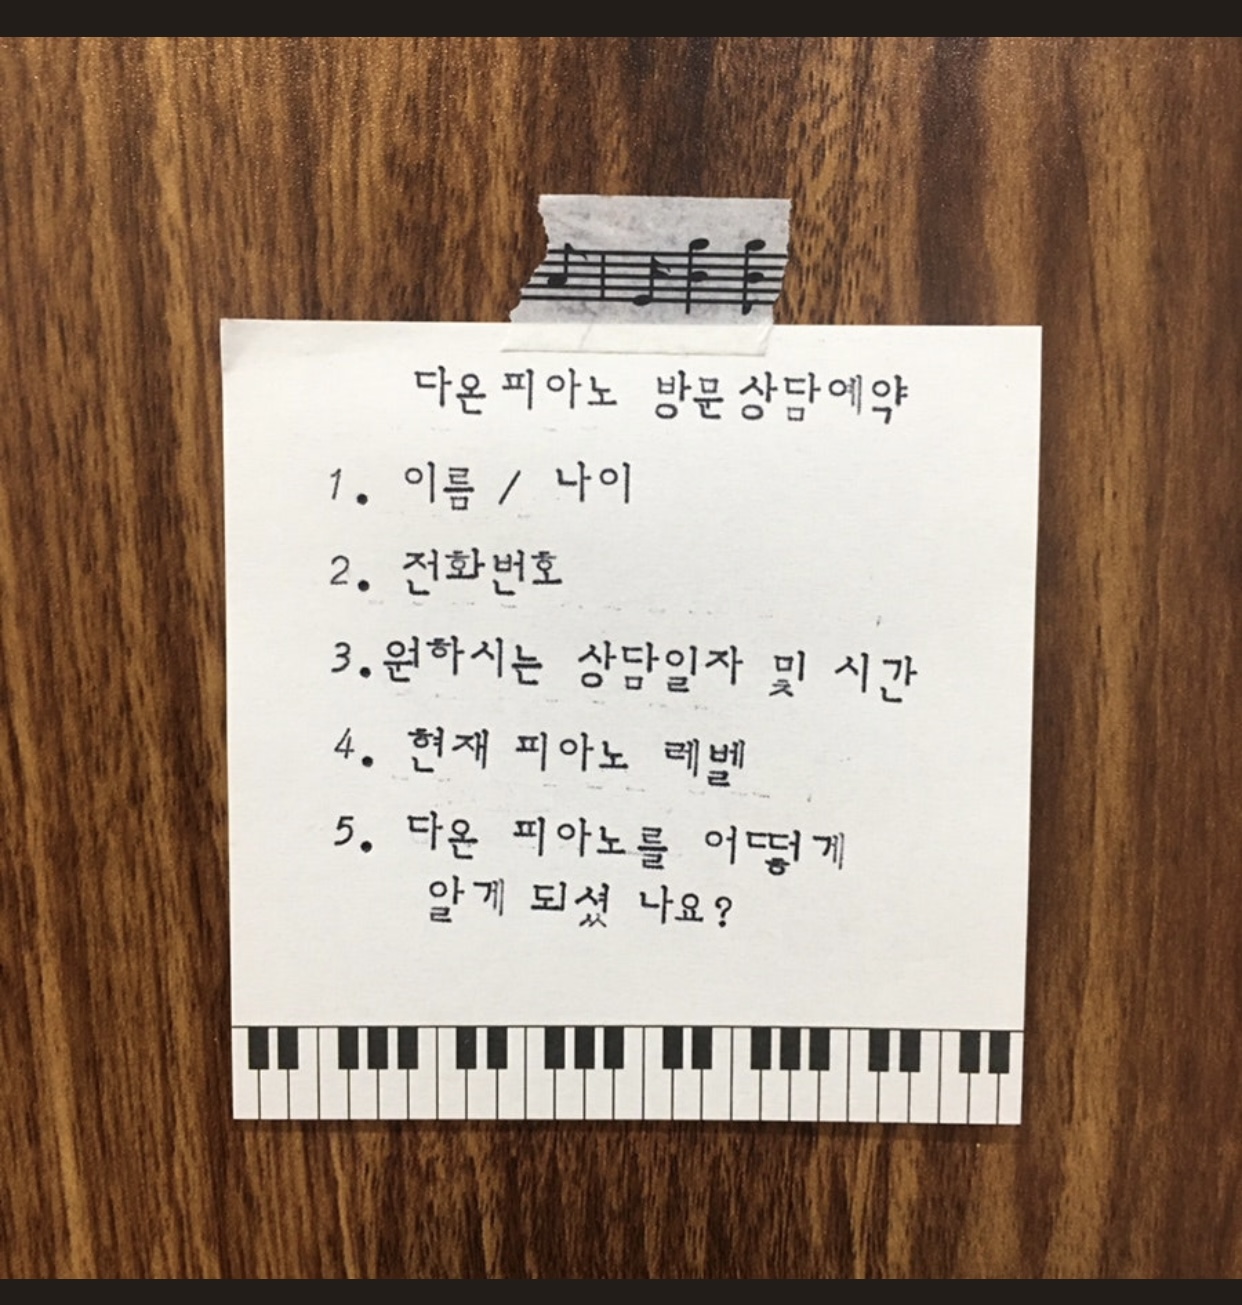 다온 피아노 방문 상담예약
1. 이름 / 나이
2. 전화번호
3. 원하시는 상담일자 및 시간
4. 현재 피아노 레벨
5. 다온 피아노를 어떻게
알게 되셨 나요?